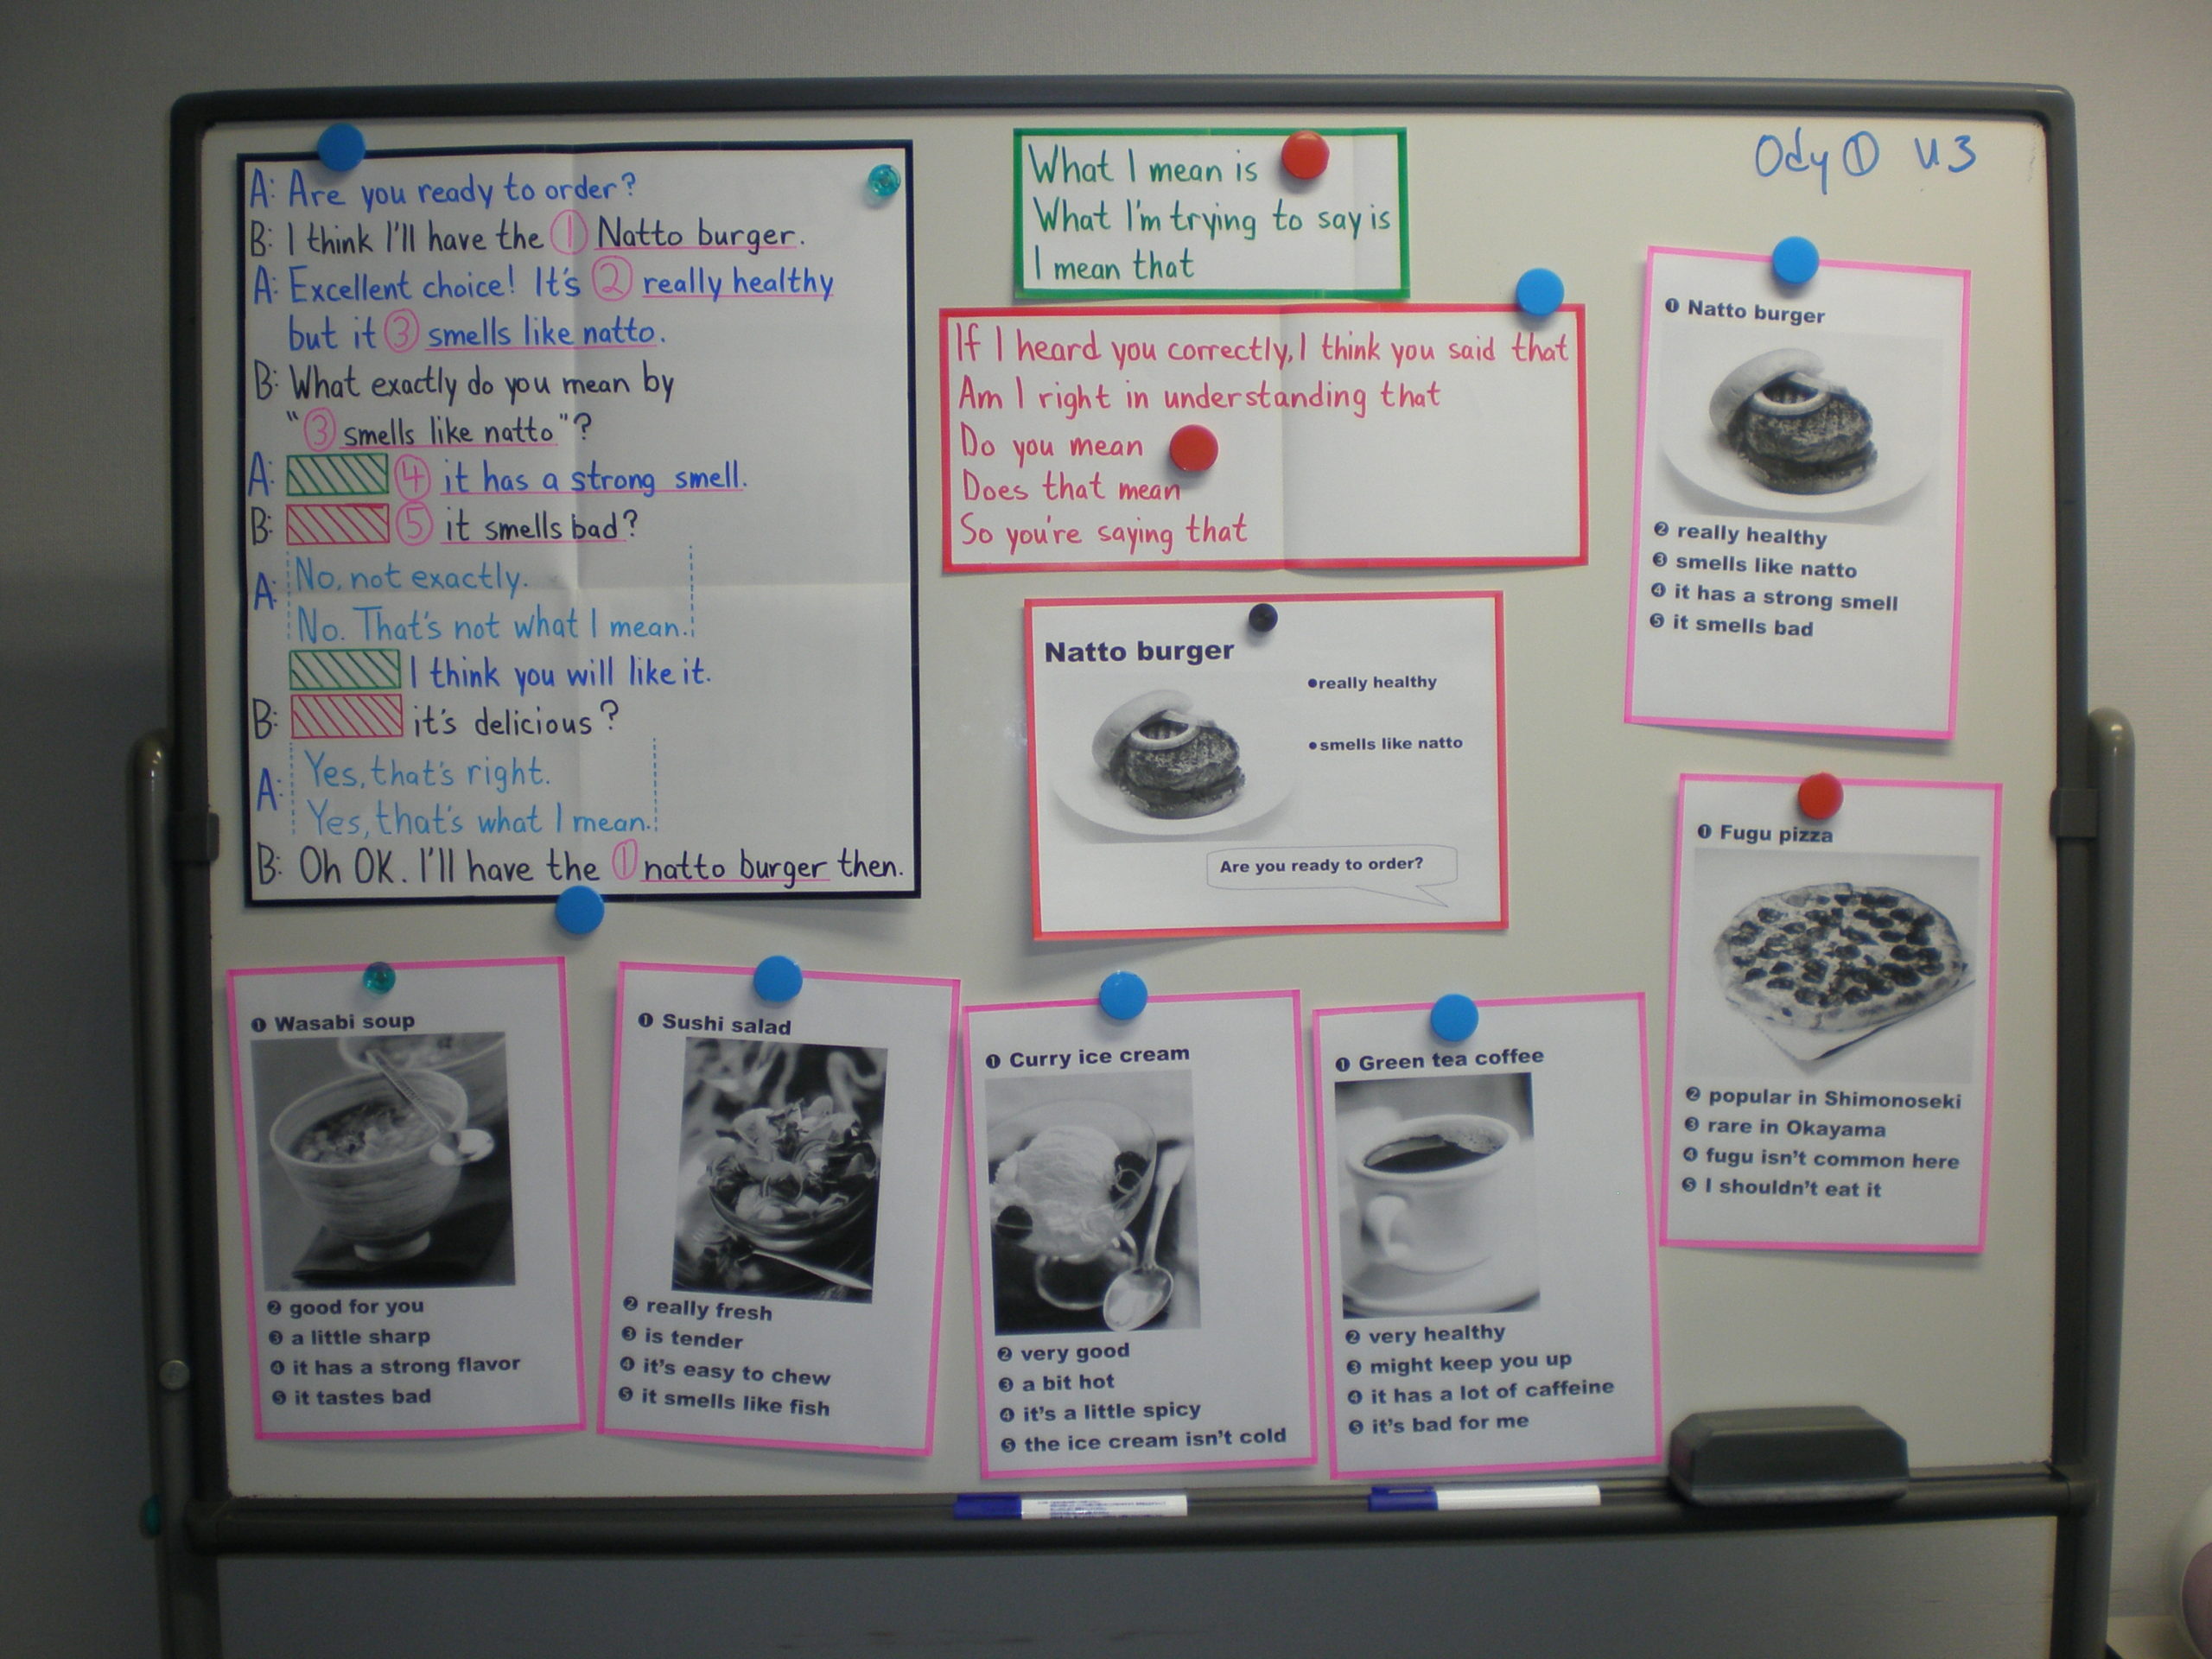 A: Are you ready to order?
B: I think I'll have the ① Natto burger.
A: Excellent choice! It's ② really healthy
but it ③ smells like natto.
B: What exactly do you mean by
"③ smells like natto"?
A: ④ it has a strong smell.
B: ⑤ it smells bad?
A: No, not exactly.
No. That's not what I mean.
I think you will like it.
B: it's delicious?
A: Yes, that's right.
Yes, that's what I mean.
B: Oh OK. I'll have the ① natto burger then.
What I mean is
What I'm trying to say is
I mean that
If I heard you correctly, I think you said that
Am I right in understanding that
Do you mean
Does that mean
So you're saying that
Natto burger
•really healthy
•smells like natto
Are you ready to order?
Ody ① U3
❶ Natto burger
❷ really healthy
❸ smells like natto
❹ it has a strong smell
❺ it smells bad
❶ Fugu pizza
❷ popular in Shimonoseki
❸ rare in Okayama
❹ fugu isn't common here
❺ I shouldn't eat it
❶ Wasabi soup
❷ good for you
❸ a little sharp
❹ it has a strong flavor
❺ it tastes bad
❶ Sushi salad
❷ really fresh
❸ is tender
❹ it's easy to chew
❺ it smells like fish
❶ Curry ice cream
❷ very good
❸ a bit hot
❹ it's a little spicy
❺ the ice cream isn't cold
❶ Green tea coffee
❷ very healthy
❸ might keep you up
❹ it has a lot of caffeine
❺ it's bad for me